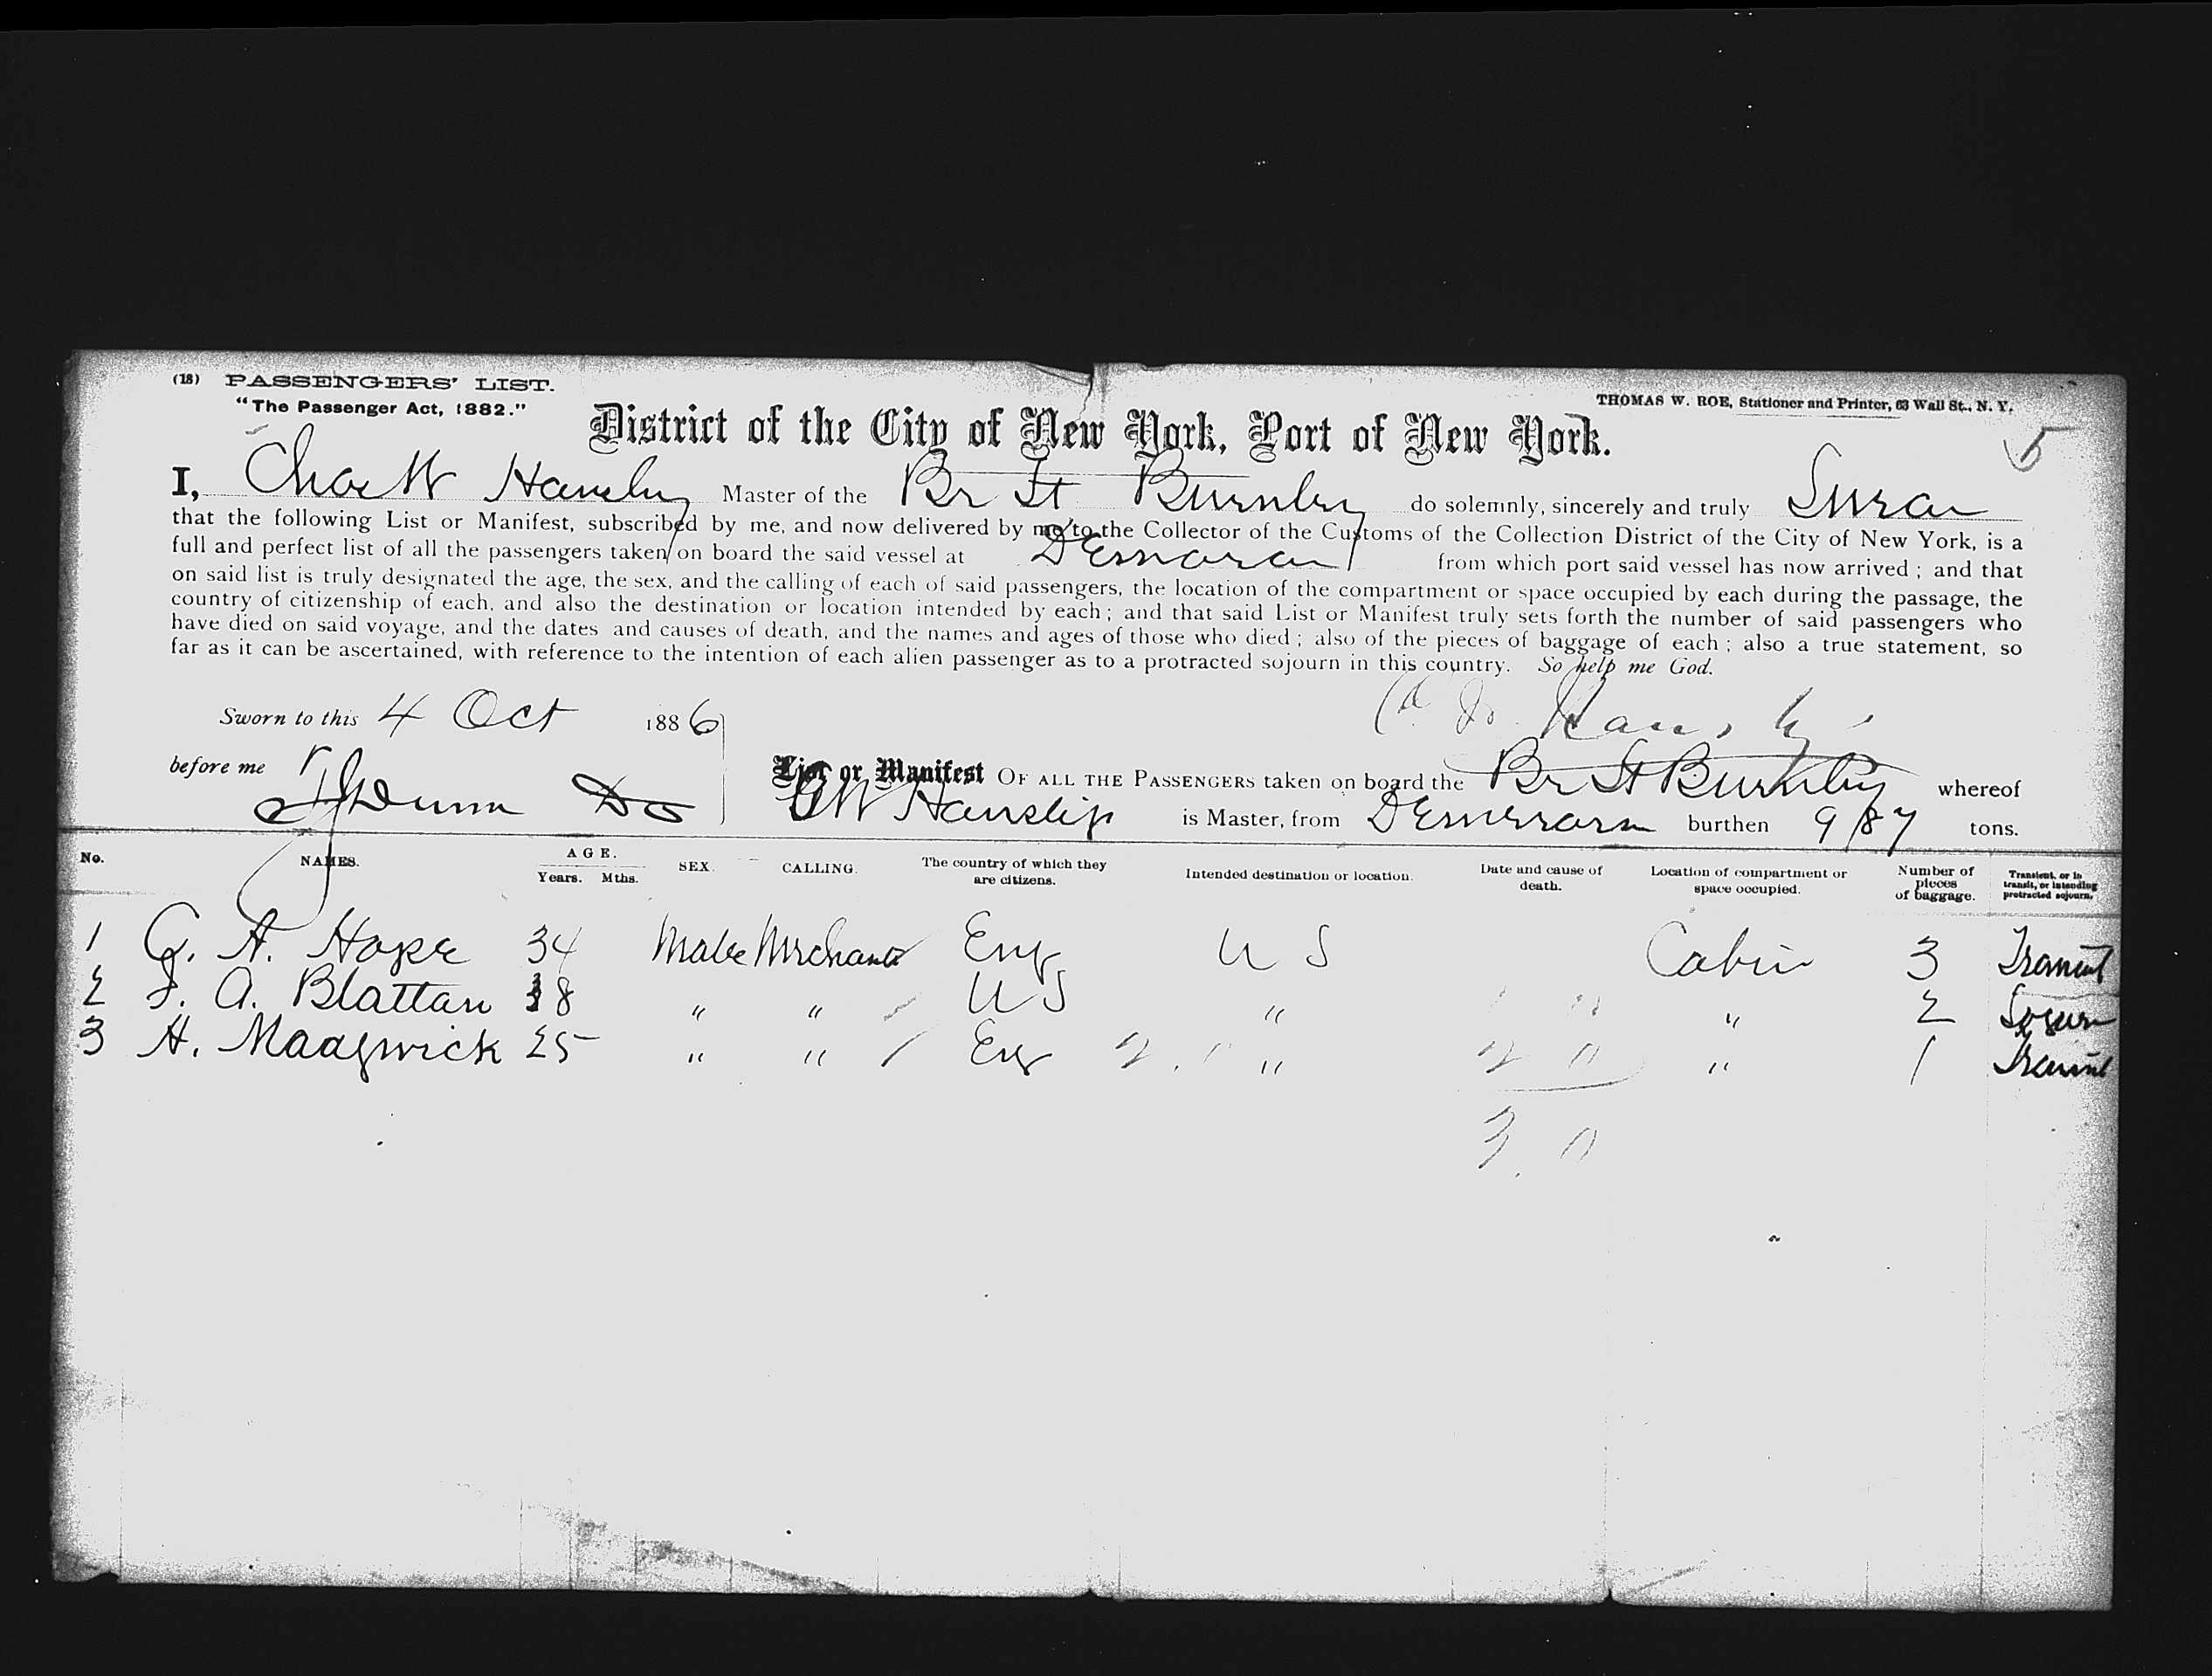 (18) PASSENGERS' LIST.
"The Passenger Act, 1882."
THOMAS W. ROE, Stationer and Printer, 63 Wall St., N. Y.
District of the City of New York, Port of New York.
5
I, Chas W Hansly Master of the Br St Burnley do solemnly, sincerely and truly Swear
that the following List or Manifest, subscribed by me, and now delivered by me to the Collector of the Customs of the Collection District of the City of New York, is a
full and perfect list of all the passengers taken on board the said vessel at Demerara from which port said vessel has now arrived; and that
on said list is truly designated the age, the sex, and the calling of each of said passengers, the location of the compartment or space occupied by each during the passage, the
country of citizenship of each, and also the destination or location intended by each; and that said List or Manifest truly sets forth the number of said passengers who
have died on said voyage, and the dates and causes of death, and the names and ages of those who died; also of the pieces of baggage of each; also a true statement, so
far as it can be ascertained, with reference to the intention of each alien passenger as to a protracted sojourn in this country. So help me God.
Sworn to this 4 Oct 1886
before me Dunn
List or Manifest OF ALL THE PASSENGERS taken on board the Br St Burnley whereof
CW Hanslip is Master, from Demerara burthen 987 tons.
No. NAMES. AGE. Years. Mths. SEX. CALLING. The country of which they are citizens. Intended destination or location. Date and cause of death. Location of compartment or space occupied. Number of pieces of baggage. Transient, or in transit, or intending protracted sojourn.
1 C. A. Hope 34 Male Merchant Eng U S Cabin 3 Transit
2 F. A. Blattan 38 " " U S " " 2 Sojourn
3 H. Maagwick 25 " " Eng " " 1 Transit
3 0